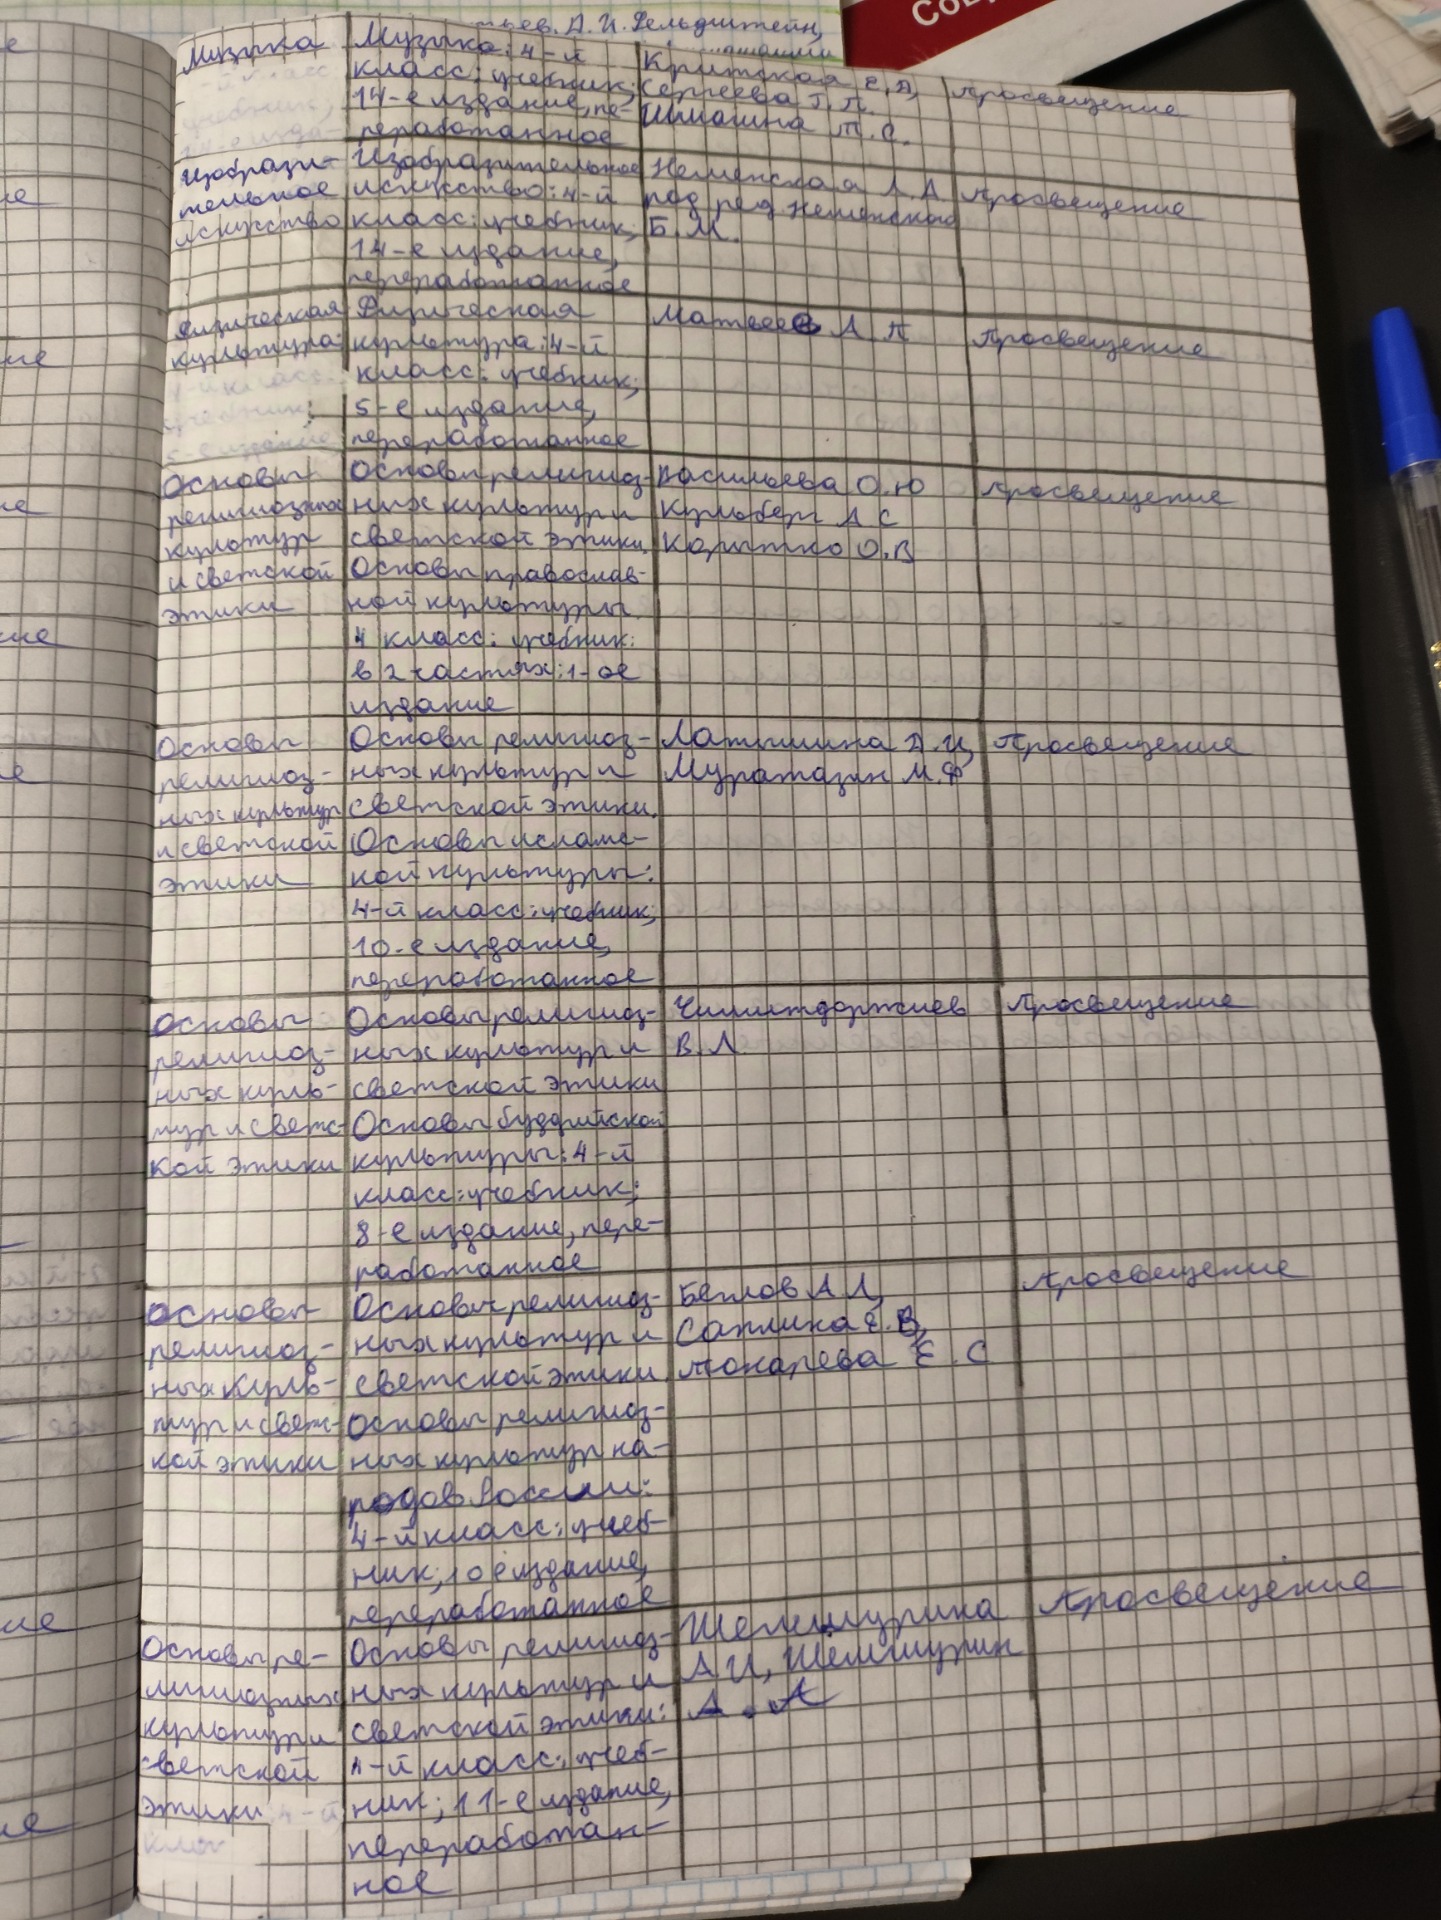 А.И. Фельдштейн,
Музыка
Музыка: 4-й
класс: учебник;
14-е издание, пе-
реработанное
Критская Е.Д,
Сергеева Г.П.
Шмагина Т.С.
Просвещение
Изобрази-
тельное
искусство
Изобразительное
искусство: 4-й
класс: учебник;
14-е издание,
переработанное
Неменская Л.А
под ред Неменского
Б.М.
Просвещение
Физическая
культура:
Физическая
культура: 4-й
класс: учебник;
5-е издание,
переработанное
Матвеев А П
Просвещение
Основы
религиозных
культур
и светской
этики
Основы религиоз-
ных культур и
светской этики.
Основы православ-
ной культуры
4 класс: учебник:
в 2 частях: 1-ое
издание
Васильева О.Ю
Кульберг А С
Корытко О.В
Просвещение
Основы
религиоз-
ных культур
и светской
этики
Основы религиоз-
ных культур и
светской этики.
Основы исламс-
кой культуры:
4-й класс: учебник;
10-е издание,
переработанное
Латышина Д.И,
Муртазин М.Ф
Просвещение
Основы
религиоз-
ных куль-
тур и светс-
кой этики
Основы религиоз-
ных культур и
светской этики
Основы буддийской
культуры: 4-й
класс: учебник;
8-е издание, пере-
работанное
Чимитдоржиев
В.Л
Просвещение
Основы
религиоз-
ных куль-
тур и светс-
кой этики
Основы религиоз-
ных культур и
светской этики.
Основы религиоз-
ных культур на-
родов России:
4-й класс: учеб-
ник; 10 е издание,
переработанное
Беглов А Л,
Саплина Е.В,
Токарева Е.С
Просвещение
Основы ре-
лигиозных
культур и
светской
этики
Основы религиоз-
ных культур и
светской этики:
4-й класс: учеб-
ник; 11-е издание,
переработан-
ное
Шемшурина
А И, Шемшурин
А.А
Просвещение